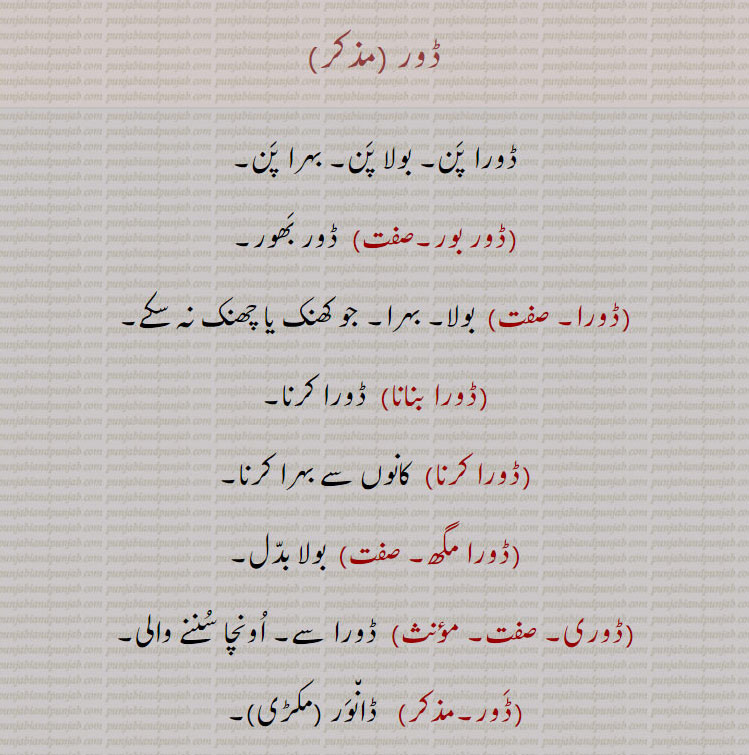 ڈور (مذکر)
ڈورا پَن۔ بولا پَن۔ بہرا پَن۔
(ڈور بور۔صفت) ڈور بَھور۔
(ڈورا۔ صفت) بولا۔ بہرا۔ جو کھنک یا چھنک نہ سکے۔
(ڈورا بنانا) ڈورا کرنا۔
(ڈورا کرنا) کانوں سے بہرا کرنا۔
(ڈورا مگھ۔ صفت) بولا بدّل۔
(ڈوری۔ صفت۔ مؤنث) ڈورا سے۔ اُونچا سُننے والی۔
(ڈَور۔مذکر) ڈانّوَر (مکڑی)۔